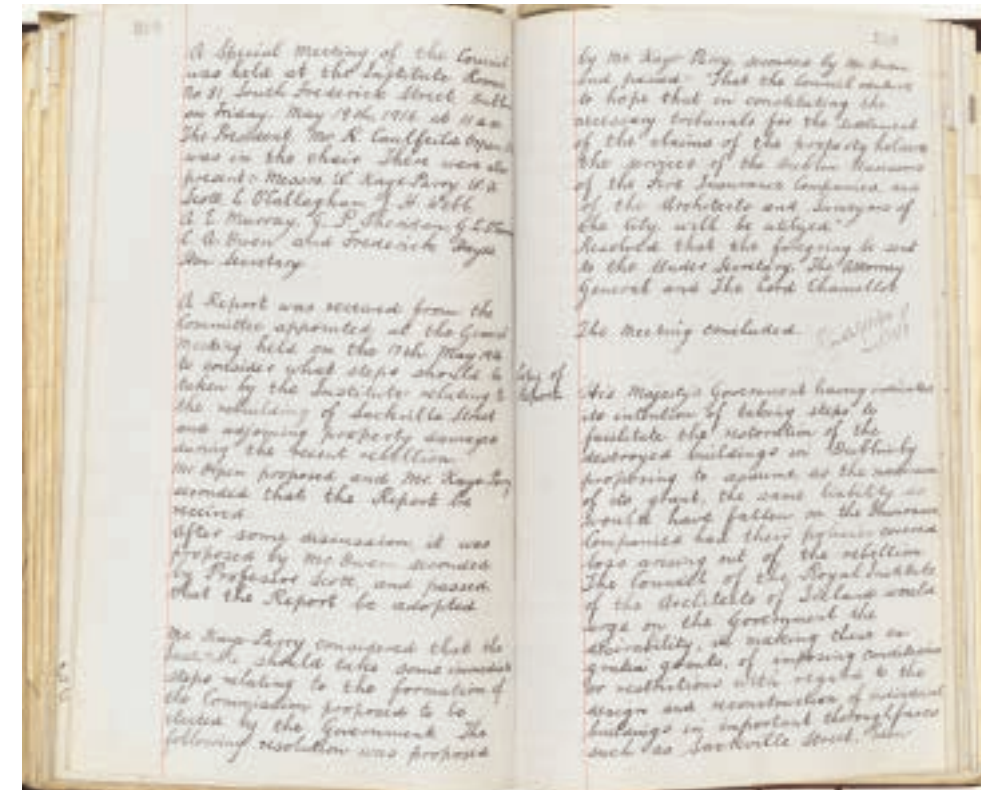 A Special Meeting of the Council
was held at the Institute Rooms
No 31 South Frederick Street
on Friday May 19th 1916 at 11 am
The President Mr R Caulfeild Orpen
was in the chair There were also
present Messrs W Kaye-Parry W A
Scott L O'Callaghan J H Webb
A E Murray G P Sheridan
L A Owen and Frederick Hayes
Hon Secretary
A Report was received from the
Committee appointed at the
Meeting held on the 17th May
to consider what steps should be
taken by the Institute relating to
the rebuilding of Sackville Street
and adjoining property damaged
during the recent rebellion
Mr Orpen proposed and Mr Kaye-Parry
seconded that the Report be
received
After some discussion it was
proposed by Mr Owen seconded
by Professor Scott, and passed
that the Report be adopted
Mr Kaye-Parry considered that the
should take some immediate
steps relating to the formation of
the Commission proposed to be
by the Government The
following resolution was proposed
by Mr Kaye Parry, seconded by Mr Owen
and passed That the Council venture
to hope that in constituting the
necessary tribunals for the settlement
of the claims of the property holders
the services of the Dublin Managers
of the Fire Insurance Companies and
of the Architects and Surveyors of
the City will be utilized
Resolved that the foregoing be sent
to the Under Secretary, The Attorney
General and The Lord Chancellor
The Meeting concluded
Copy of
Report
His Majesty's Government having indicated
its intention of taking steps to
facilitate the restoration of the
destroyed buildings in Dublin by
proposing to assume as the
of its grant, the same liability as
would have fallen on the Insurance
Companies had their policies covered
loss arising out of the rebellion
The Council of the Royal Institute
of the Architects of Ireland would
urge on the Government the
desirability, in making these ex
gratia grants, of imposing conditions
or restrictions with regard to the
design and reconstruction of individual
buildings in important thoroughfares
such as Sackville Street,